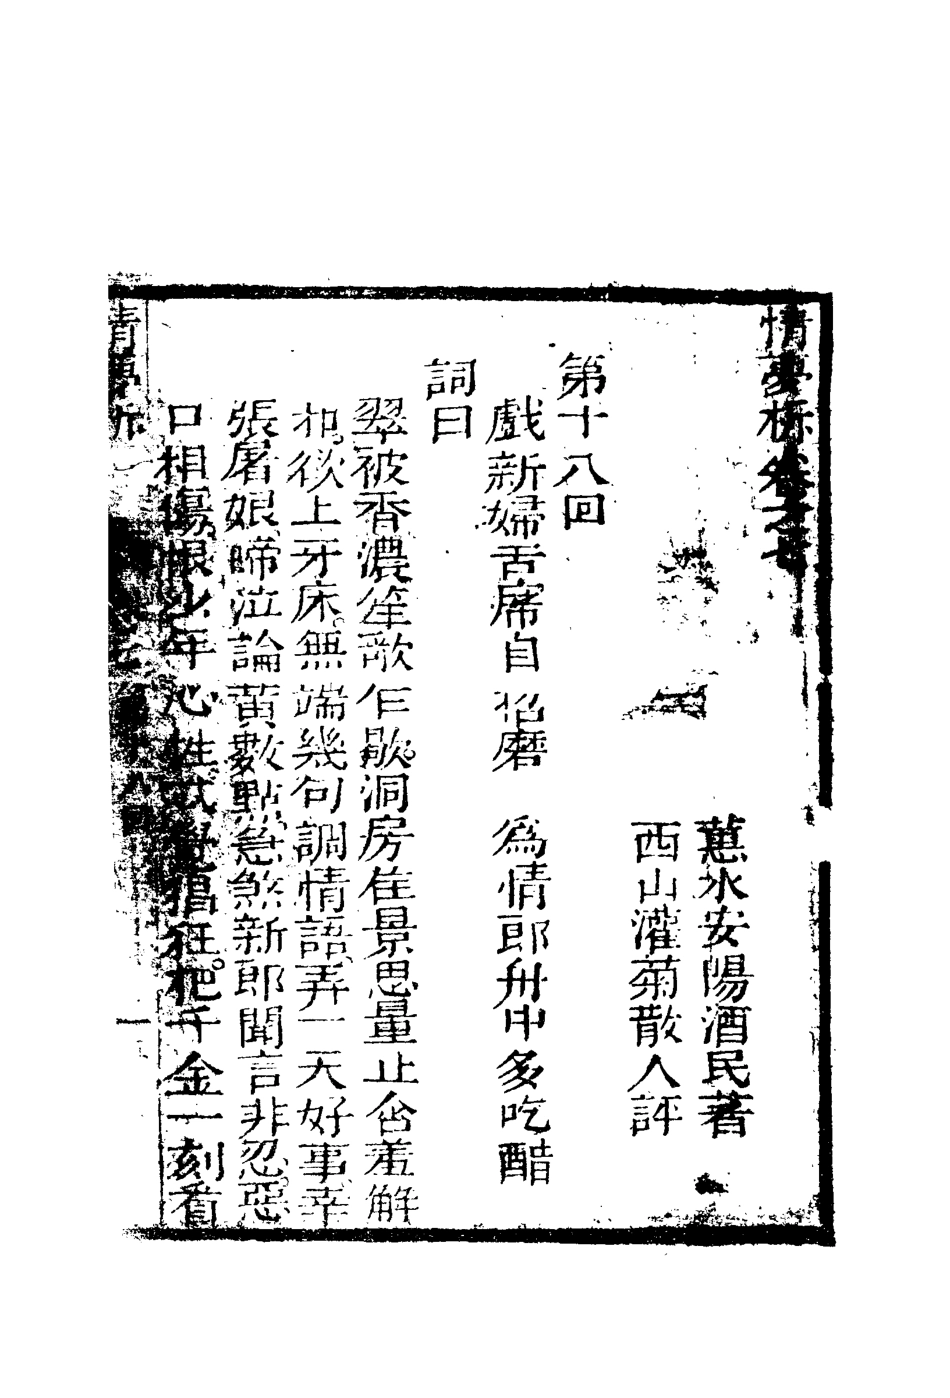 情夢柝卷之七
蕙水安陽酒民著
西山灌菊散人評
第十八回
戲新婦吞席自招磨　為情郎舟中多吃醋
詞曰
翠被香濃笙歌乍歇。洞房佳景思量止含羞解
扣。欲上牙床。無端幾句調情語。弄一天好事幸
張屠娘啼泣論黃數黑急煞新郎聞言非忍。惡
口相傷。恨少年心性。猖狂。把千金一刻看
情夢柝
第十八回
一